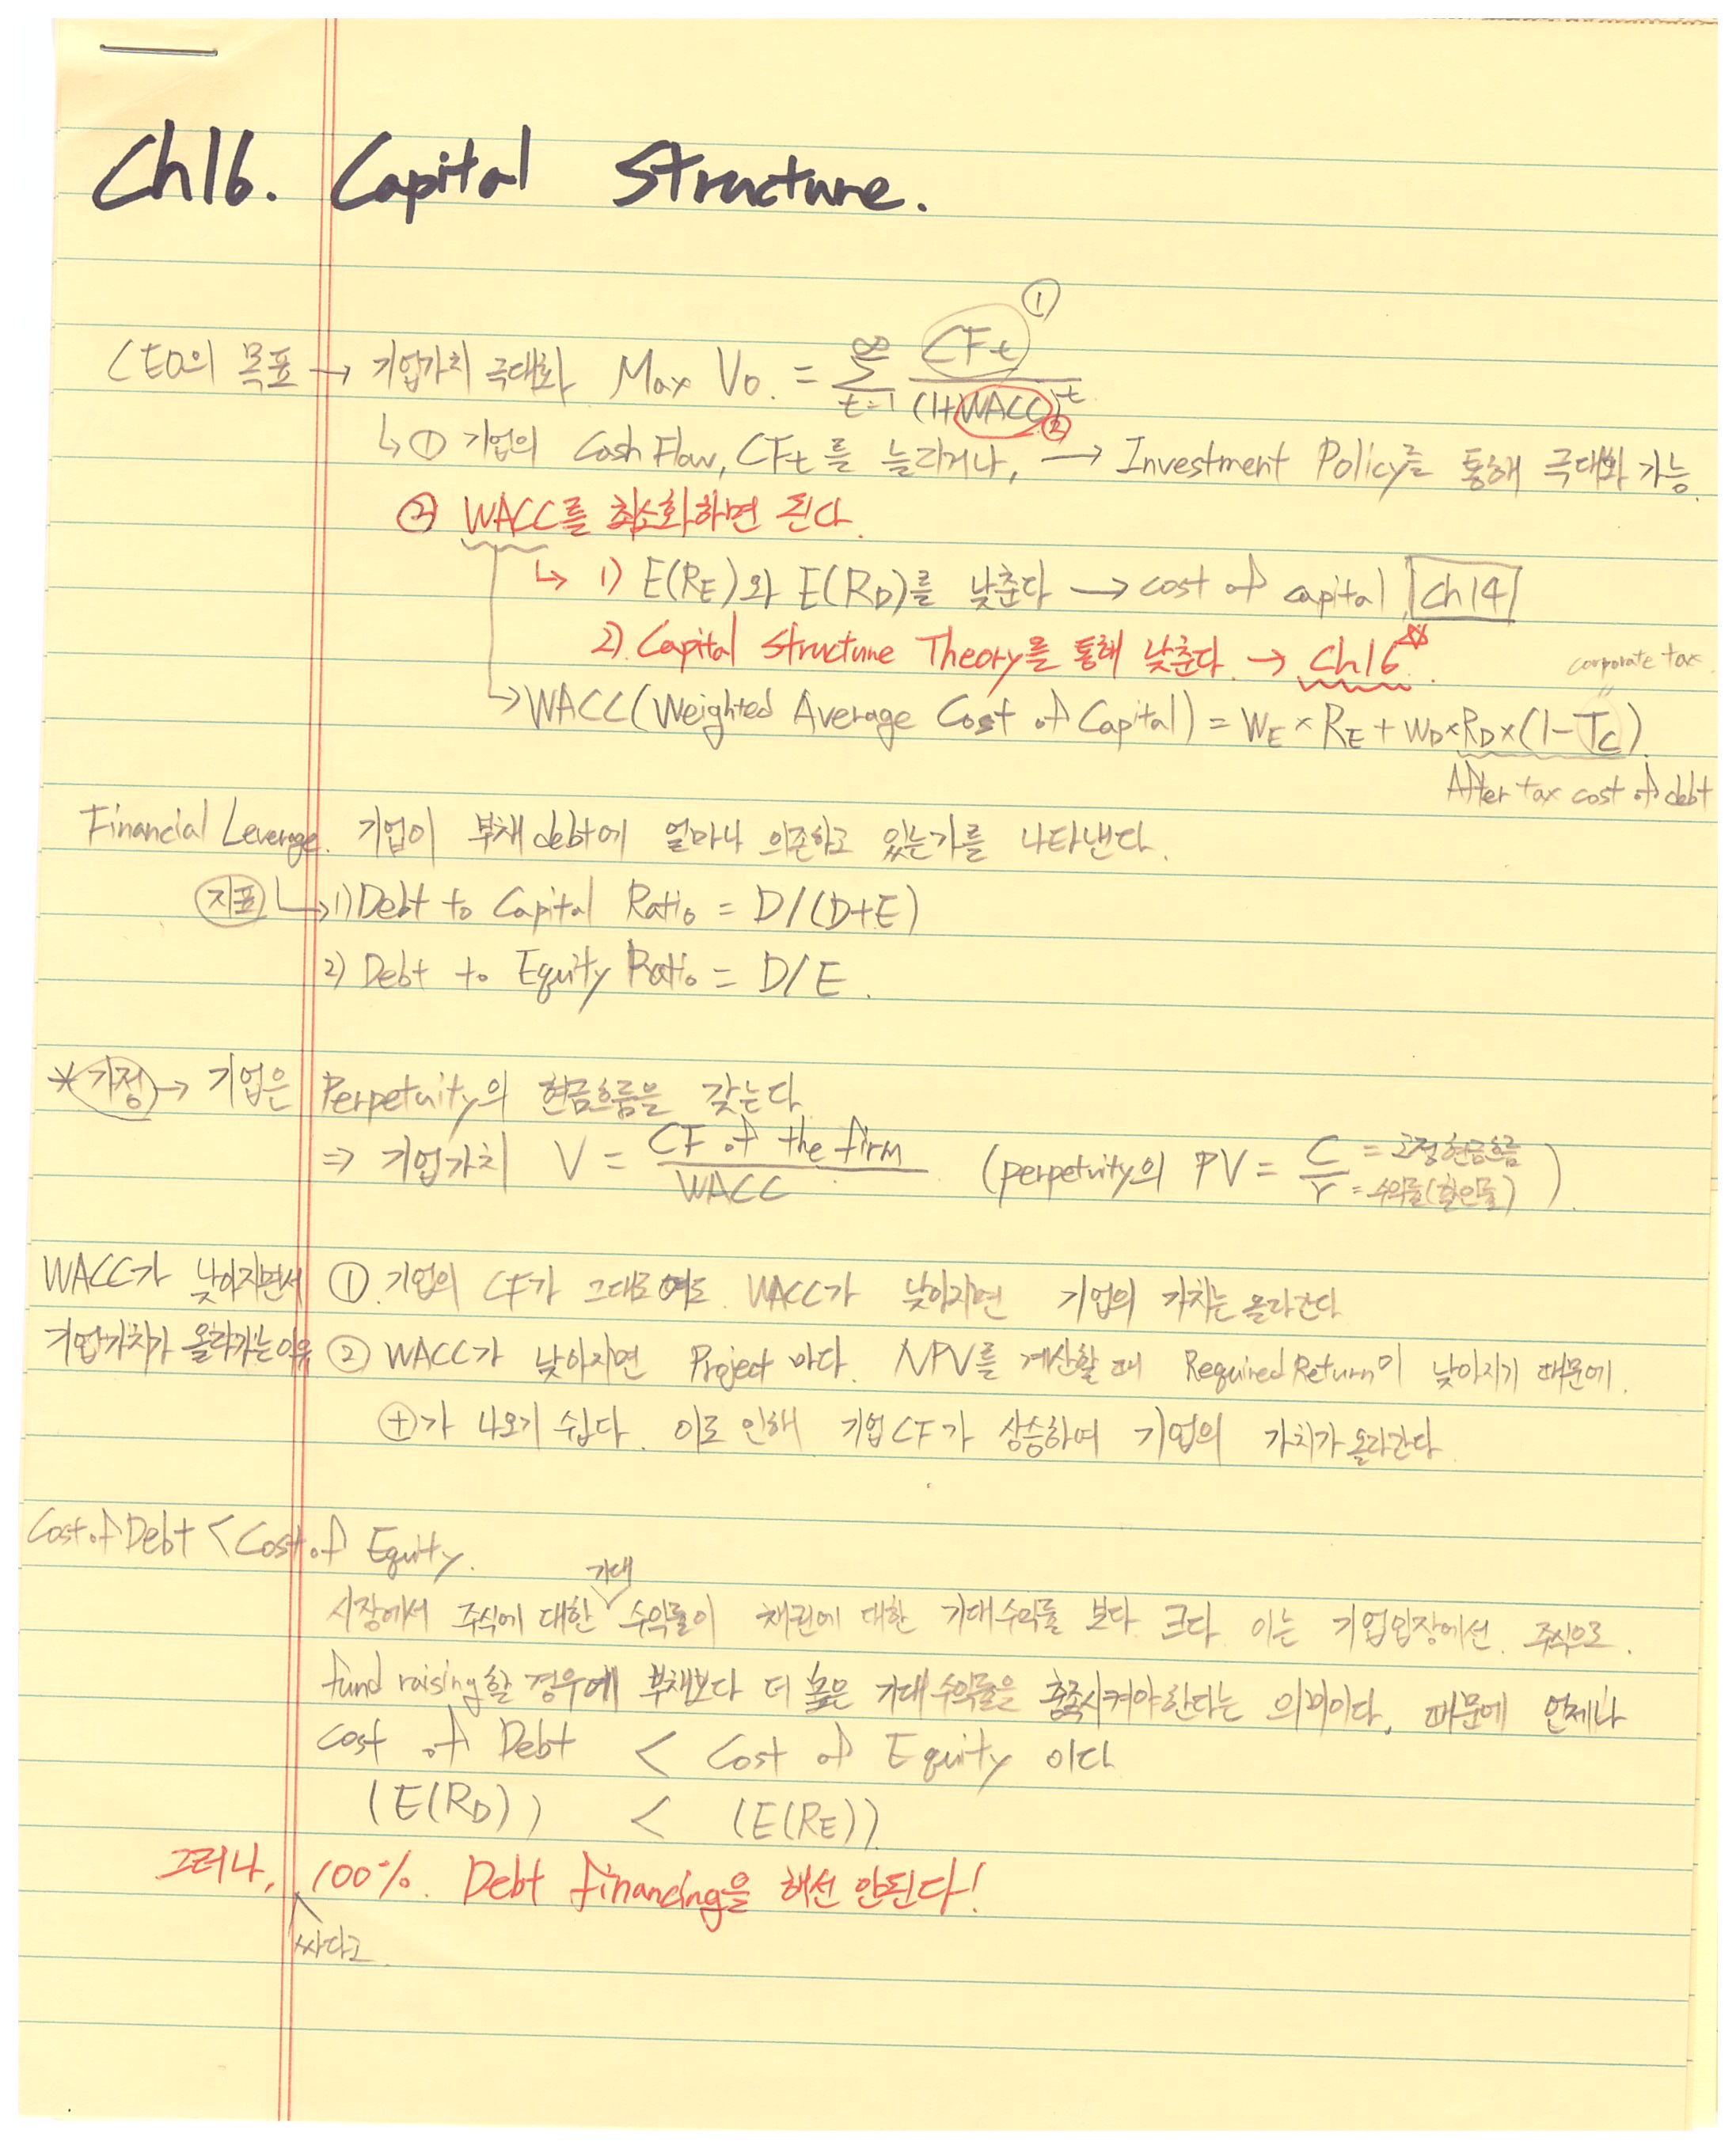 Ch16. Capital Structure.
①
CEO의 목표 → 기업가치 극대화 Max V₀. = ∞∑t=1 CFt / (1+WACC)^t ②
↳ ① 기업의 Cash Flow, CFt를 늘리거나, → Investment Policy를 통해 극대화 가능.
② WACC를 최소화하면 된다.
↳ 1) E(RE)와 E(RD)를 낮춘다 → cost of capital Ch14
2) Capital Structure Theory를 통해 낮춘다. → Ch16☆.
corporate tax
→ WACC(Weighted Average Cost of Capital) = WE × RE + WD × RD × (1-TC).
After tax cost of debt
Financial Leverage. 기업이 부채 debt에 얼마나 의존하고 있는가를 나타낸다.
지표 ↳ 1) Debt to Capital Ratio = D/(D+E)
2) Debt to Equity Ratio = D/E.
* 가정 → 기업은 Perpetuity의 현금흐름을 갖는다
⇒ 기업가치 V = CF of the firm / WACC (perpetuity의 PV = C/r = 고정현금흐름 = 수익률(할인률))
WACC가 낮아지면서 ① 기업의 CF가 그대로여도 WACC가 낮아지면 기업의 가치는 올라간다
기업가치가 올라가는 이유 ② WACC가 낮아지면 Project 마다 NPV를 계산할 때 Required Return이 낮아지기 때문에.
⊕가 나오기 쉽다. 이로 인해 기업CF가 상승하여 기업의 가치가 올라간다
Cost of Debt < Cost of Equity.
기대
시장에서 주식에 대한 수익률이 채권에 대한 기대수익률 보다 크다 이는 기업입장에선 주식으로
fund raising할 경우에 부채보다 더 높은 기대수익률을 충족시켜야한다는 의미이다. 때문에 언제나
Cost of Debt < Cost of Equity 이다
(E(RD)) < (E(RE))
그러나, 100% Debt financing을 해선 안된다!
싸다고